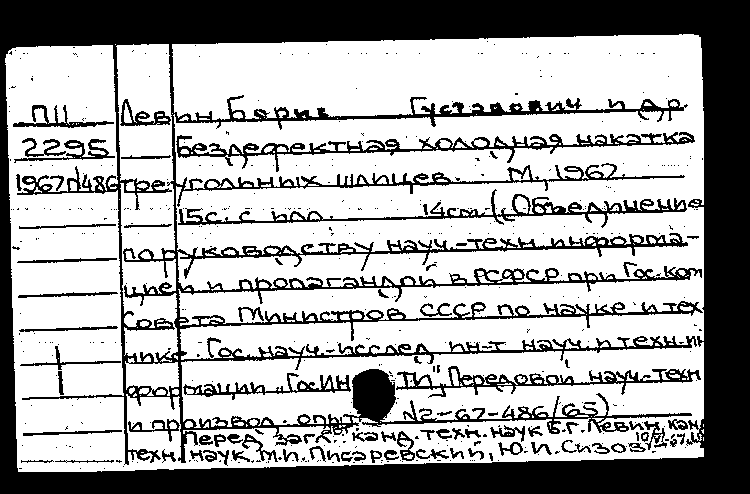 П11 Левин, Борис Густавович и др.
2295 Бездефектная холодная накатка
1967/486 треугольных шлицев. М., 1967.
15с. с илл. 14см. („Объединение
по руководству науч.-техн. информа-
цией и пропагандой в РСФСР при Гос. ком
Совета Министров СССР по науке и тех
нике. Гос. науч.-исслед. ин-т науч. и техн. ин
формации „ГосИНТИ", Передовой науч.-техн
и производ. опыт №2-67-486/65)
Перед загл. авт. канд. техн. наук Б.Г. Левин, канд
техн. наук М.И. Писаревский, Ю.И. Сизов.